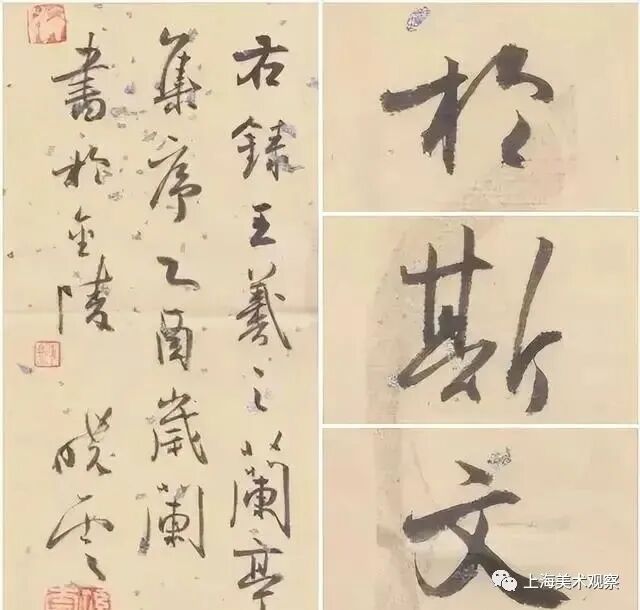 右錄王羲之蘭亭
集序乙酉歲蘭
書於金陵 曉雲
於
斯
文
上海美术观察